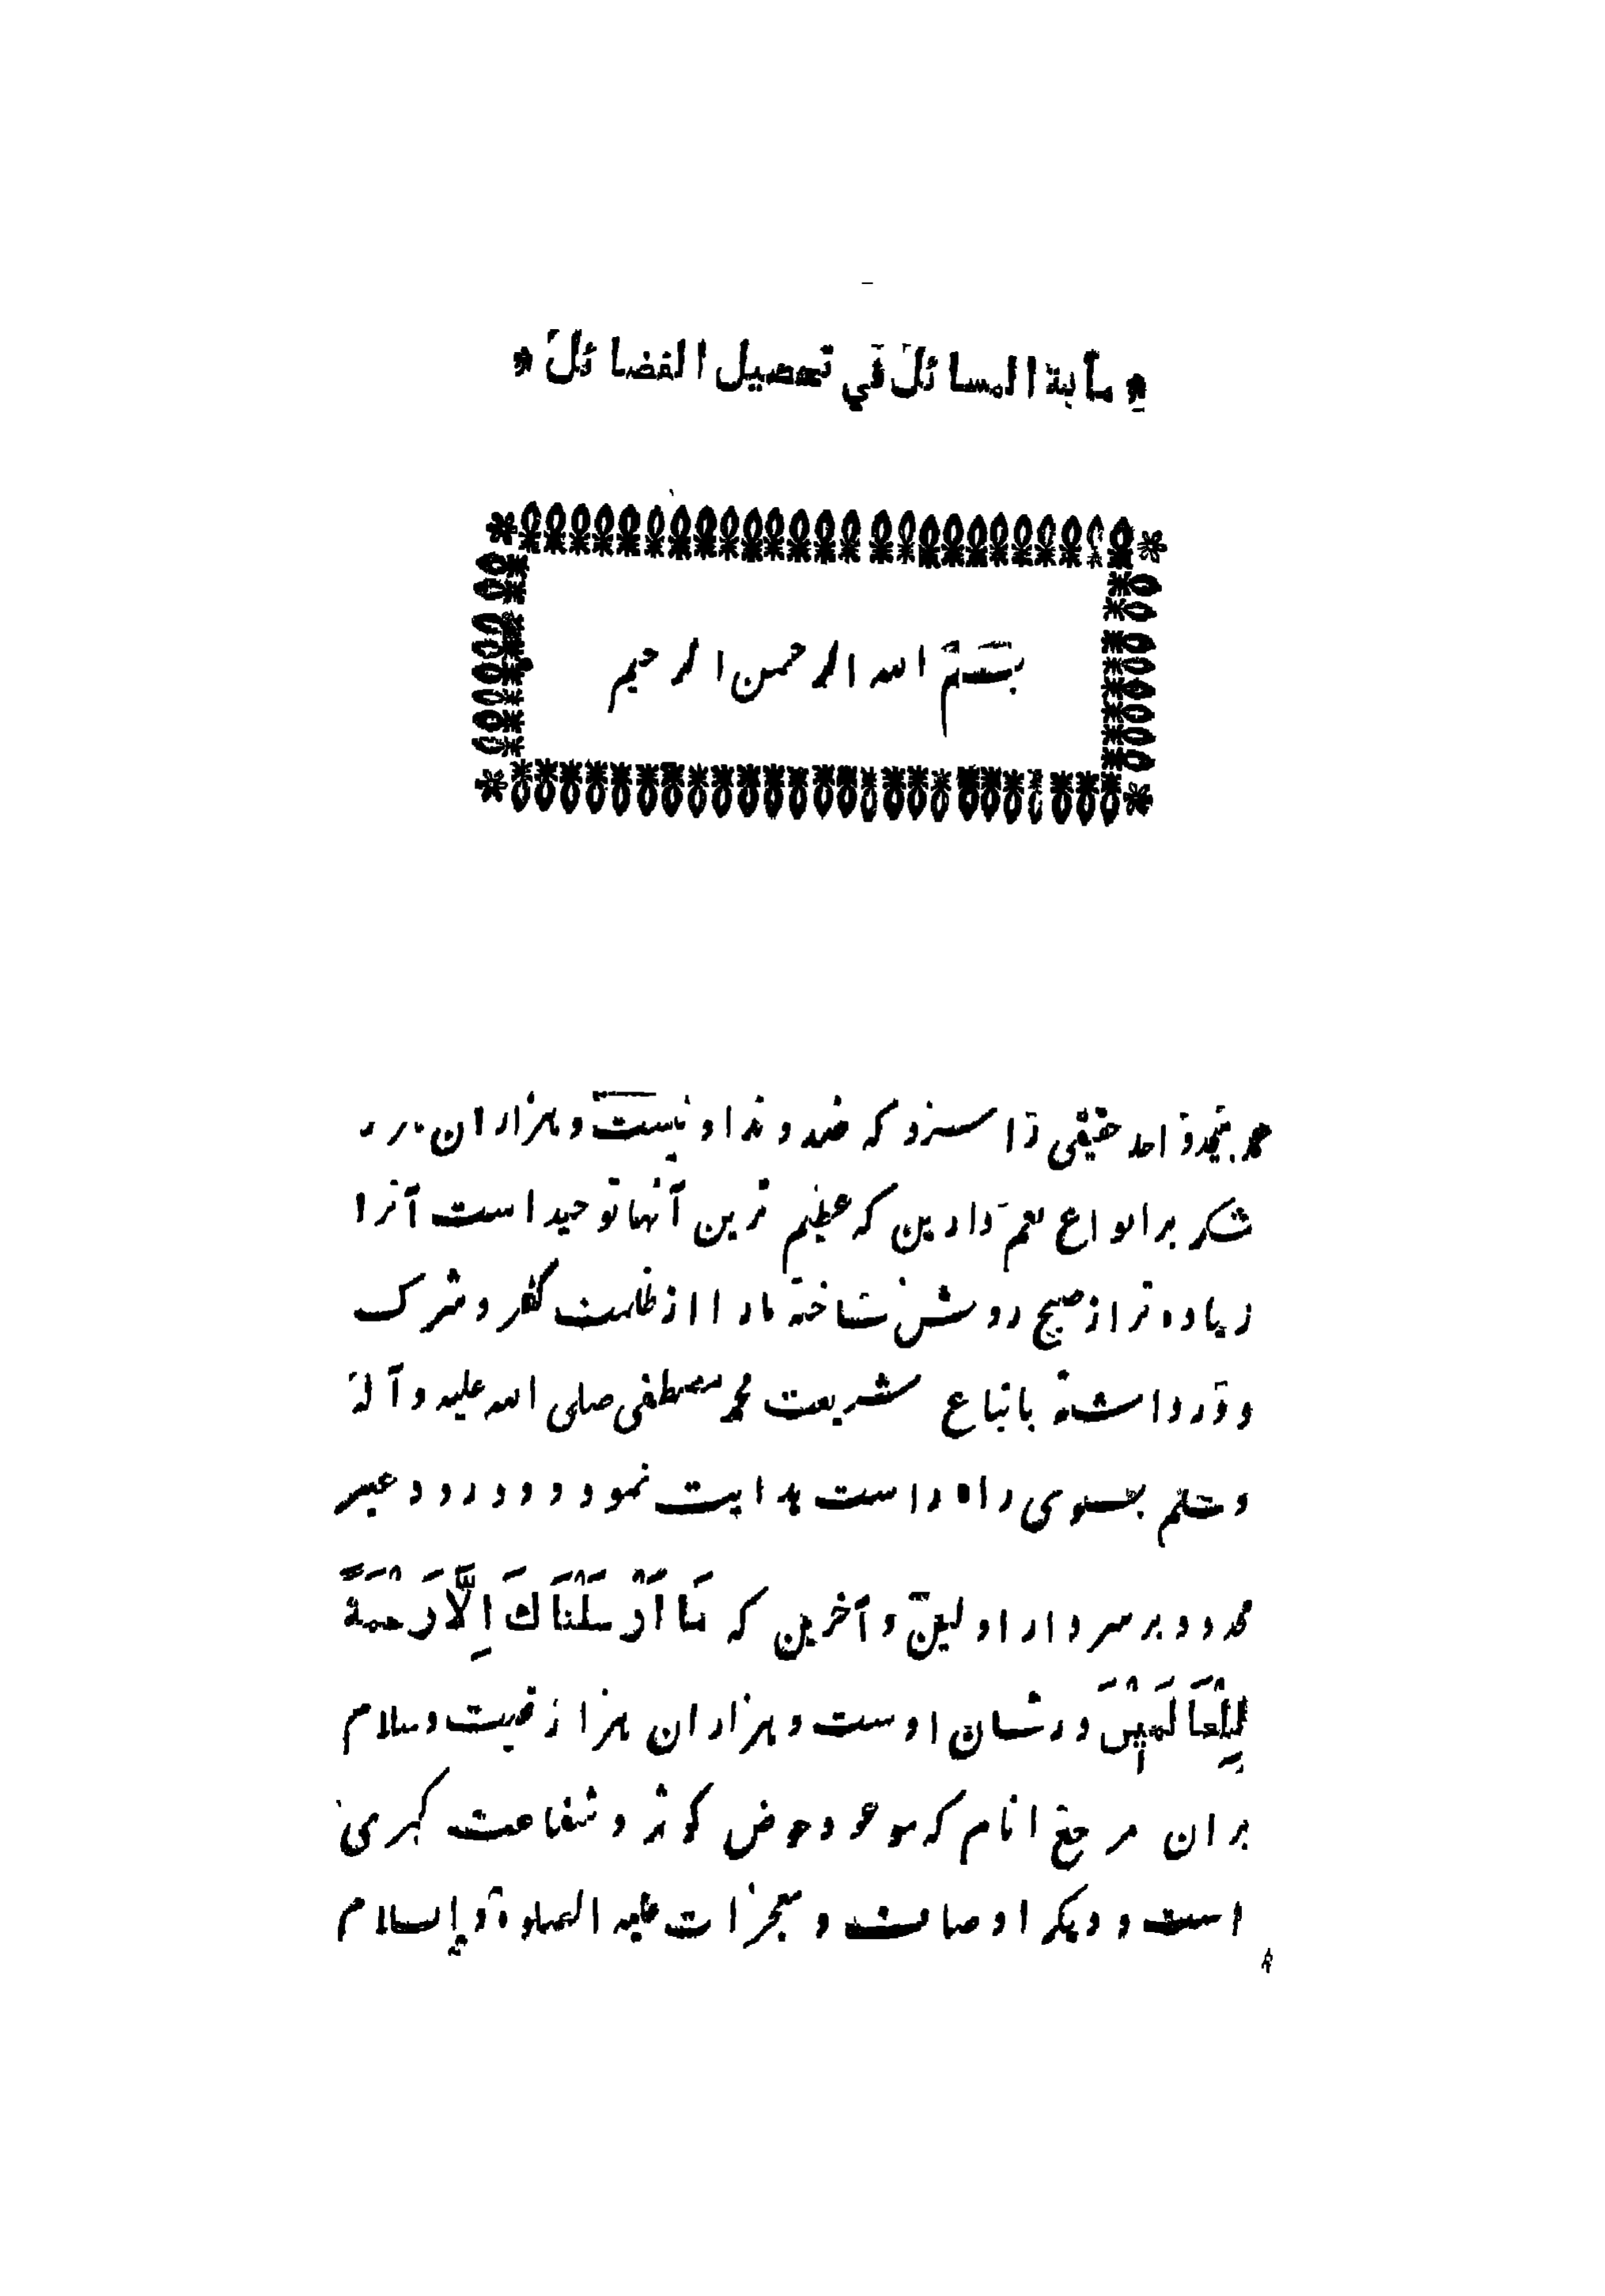 مأیة المسائل في تحصیل الفضائل
بسم الله الرحمن الرحیم
حمد بیحد واحد حقیقی را سزد که ضد و ند او نیست و هزاران
شکر بر انواع نعم دارین که عظیم ترین آنها توحید است آنرا
زیاده تر از صبح روشن ساخته مارا از ظلمت کفر و شرک
دور داشته باتباع شریعت محمد مصطفی صلی الله علیه و آله
وسلم بسوی راه راست هدایت نمود و درود غیر
محدود بر سردار اولین و آخرین که مَا اَرْسَلْنَاكَ اِلَّا رَحْمَةً
لِلْعَالَمِیْنَ در شان اوست و هزاران هزار تحیت و سلام
بران مرجع انام که موعود حوض کوثر و شفاعت کبری
است و دیگر اوصاف و معجزات علیه الصلوة والسلام